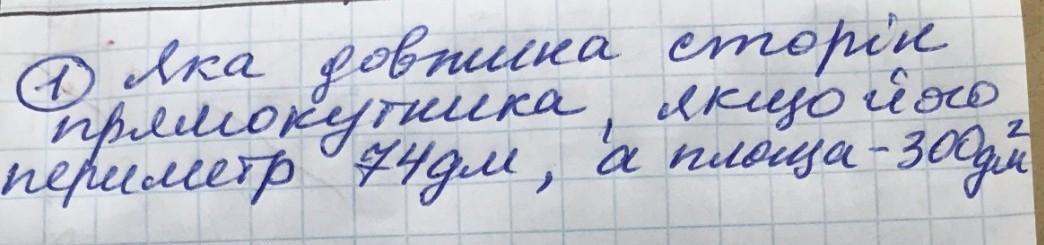 ① Яка довжина сторін
прямокутника, якщо його
периметр 74дм, а площа - 300дм²